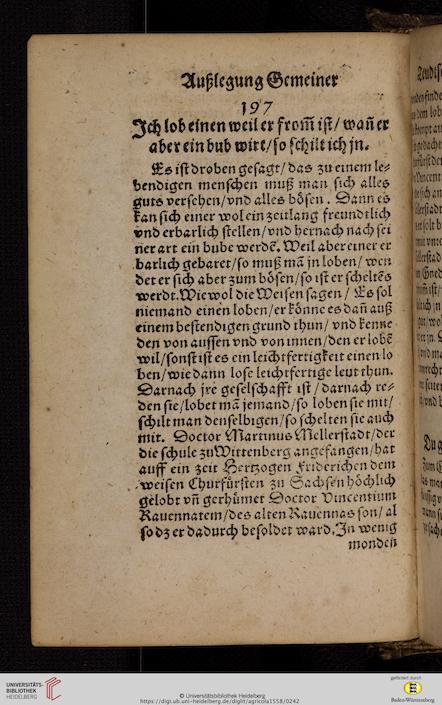 Außlegung Gemeiner
197
Ich lob einen weil er from̃ ist/ wañ er
aber ein bub wirt/ so schilt ich jn.
Es ist droben gesagt/ das zu einem le-
bendigen menschen muß man sich alles
guts versehen/ vnd alles bösen. Dann es
kan sich einer wol ein zeitlang freundtlich
vnd erbarlich stellen/ vnd hernach nach sei
ner art ein bube werdẽ. Weil aber einer er
barlich gebaret/ so muß mã jn loben/ wen
det er sich aber zum bösen/ so ist er scheltẽs
werdt. Wiewol die Weisen sagen/ Es sol
niemand einen loben/ er könne es dañ auß
einem bestendigen grund thun/ vnd kenne
den von aussen vnd von innen/ den er lobẽ
wil/ sonst ist es ein leichtfertigkeit einen lo
ben/ wie dann lose leichtfertige leut thun.
Darnach jre geselschafft ist/ darnach re-
den sie/ lobet mã jemand/ so loben sie mit/
schilt man denselbigen/ so schelten sie auch
mit. Doctor Martinus Mellerstadt/ der
die schule zu Wittenberg angefangen/ hat
auff ein zeit Hertzogen Friderichen dem
weisen Churfürsten zu Sachsen höchlich
gelobt vñ gerhümet Doctor Vincentium
Rauennatem/ des alten Rauennas son/ al
so dz er dadurch besoldet ward. In wenig
monden
UNIVERSITÄTS-
BIBLIOTHEK
HEIDELBERG
© Universitätsbibliothek Heidelberg
https://digi.ub.uni-heidelberg.de/diglit/agricola1558/0242
gefördert durch
Baden-Württemberg